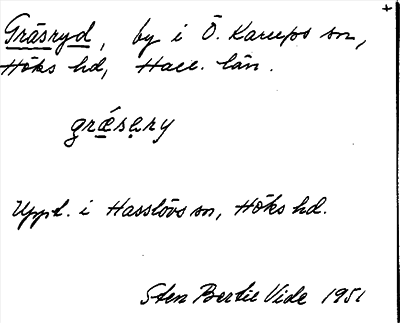 +
Gräsryd, by i Ö. Karups sn,
Höks hd, Hall. län.
græ̀sery
Uppt. i Hasslövs sn, Höks hd.
Sten Bertil Vide 1951